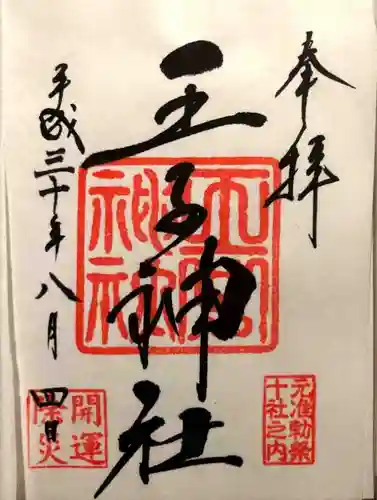 奉拝
王子神社
平成三十年八月四日
元准勅祭
十社之内
開運
除災